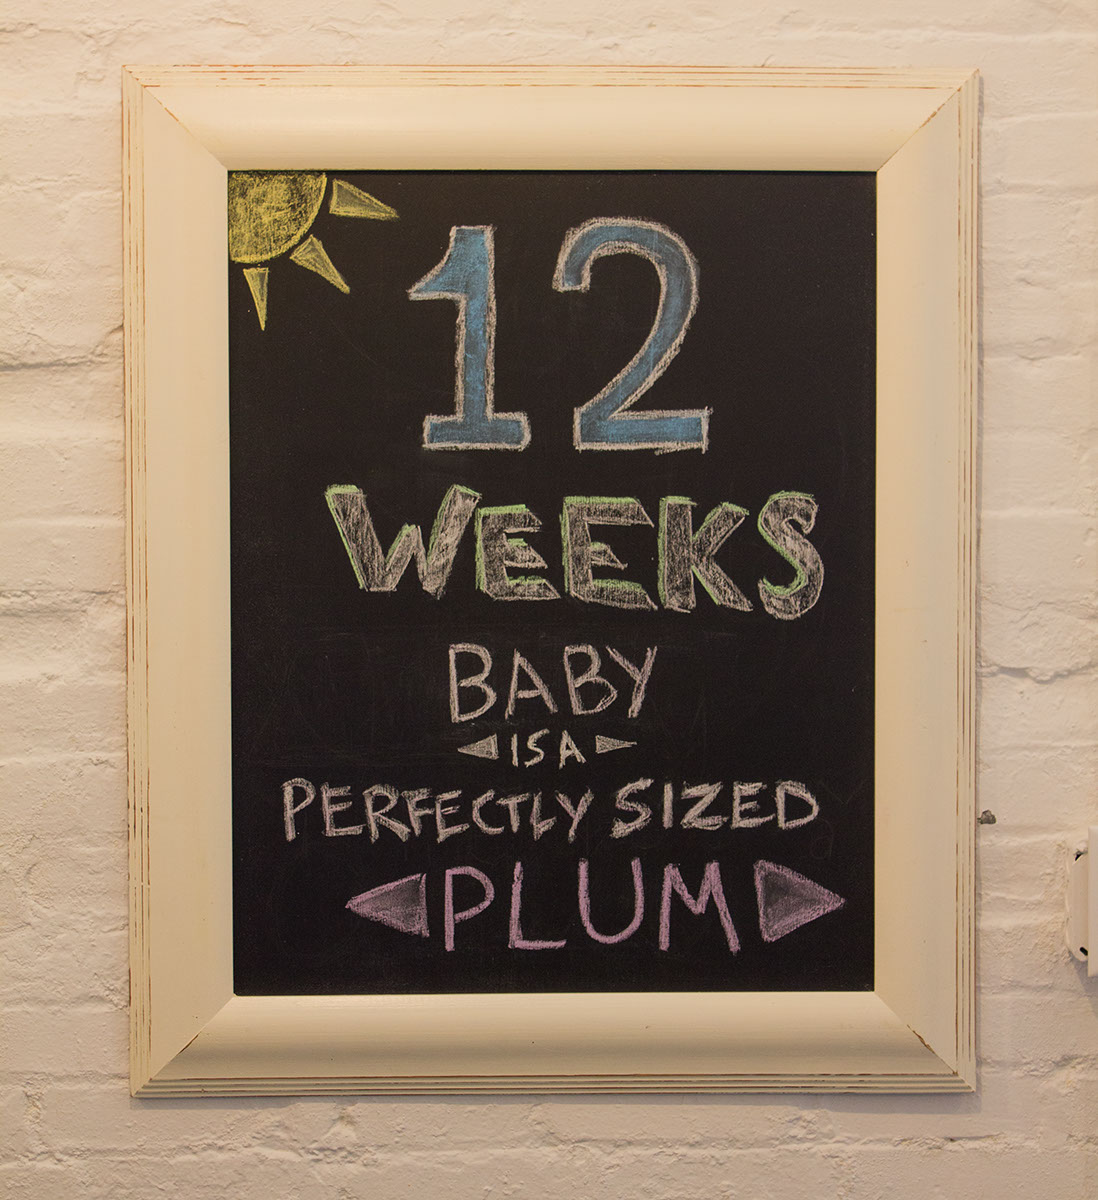 12
WEEKS
BABY
IS A
PERFECTLY SIZED
PLUM